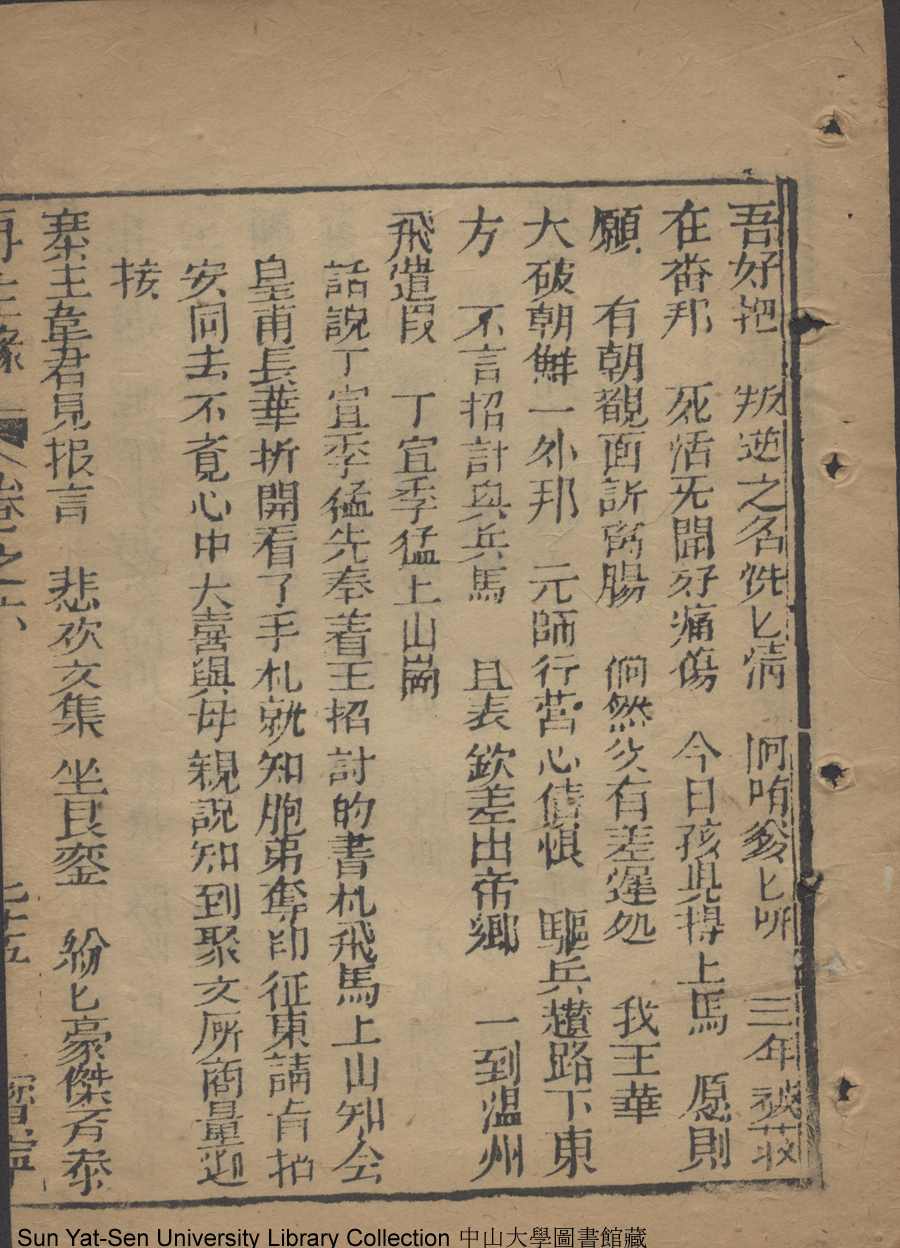 吾好把 叛逆之名洗匕情 啊唷爹匕吓 三年被䒤
在畨邦 死活无闻好痛傷 今日孩児得上馬 愿則
願 有朝覩面訴离腸 倘然父有差遲処 我王華
大破朝鮮一外邦 元師行营心僐惧 驅兵趲路下東
方 不言招討與兵馬 且表欽差出帝鄉 一到温州
飛遣叚 丁宜季猛上山崗
話說丁宜季猛先奉着王招討的書札飛馬上山知会
皇甫長華折開看了手札就知胞弟奪印征東請肯招
安同去不覔心中大喜與母親說知到聚义㕔商量迎
接
寨主韋君見报言 悲欢交集坐艮銮 紛匕豪傑斉叅
再生緣 卷之六 七十五
Sun Yat-Sen University Library Collection 中山大學圖書館藏